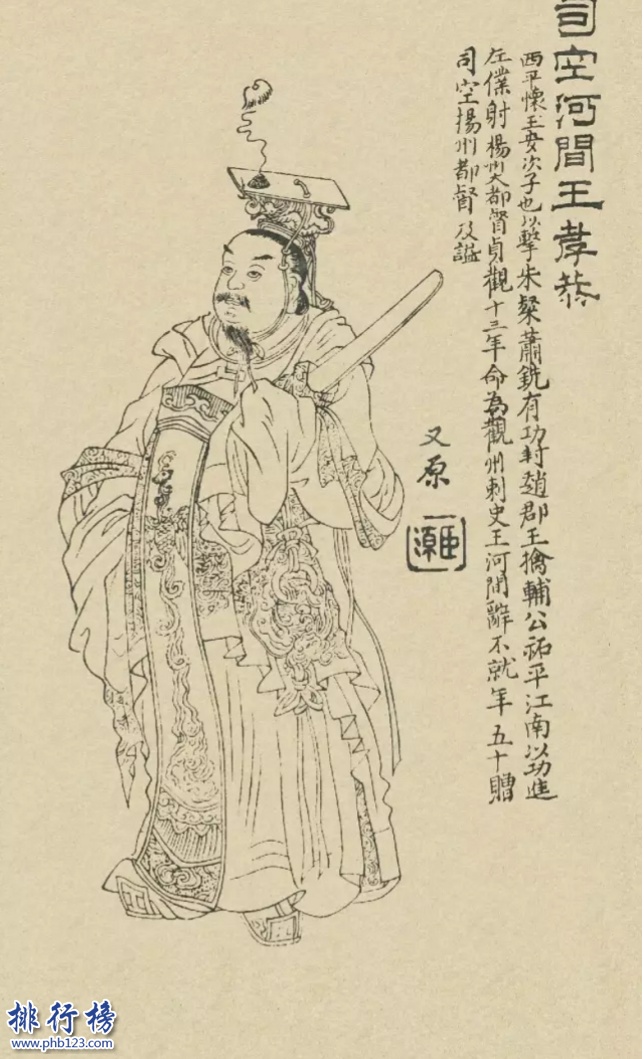 司空河間王孝恭
西平懷王安次子也以擊朱粲蕭銑有功封趙郡王擒輔公祏平江南以功進
左僕射楊州大都督貞觀十三年命為觀州刺史王河間辭不就年五十贈
司空揚州都督及謚
又原
臣源
排行榜
www.phb123.com